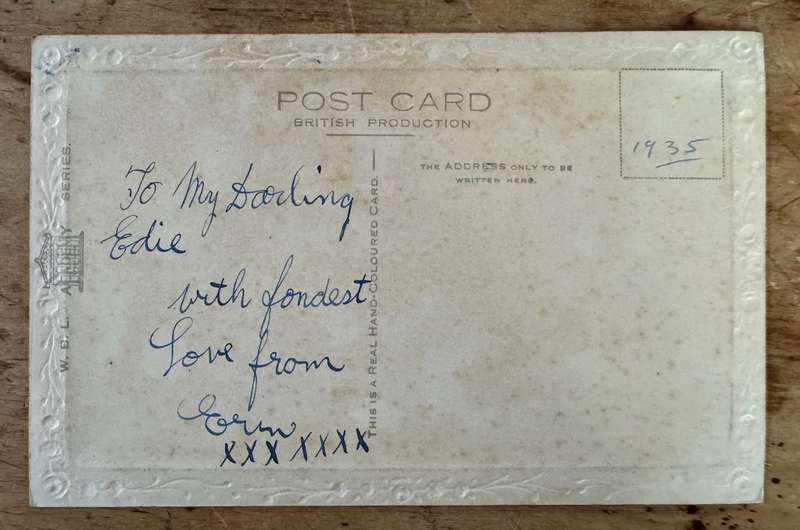 POST CARD
BRITISH PRODUCTION
THE ADDRESS ONLY TO BE
WRITTEN HERE.
1935
To My Darling
Edie
with fondest
Love from
Ern
XXX XXXX
THIS IS A REAL HAND-COLOURED CARD.
W. B. L. ACADEMY SERIES.